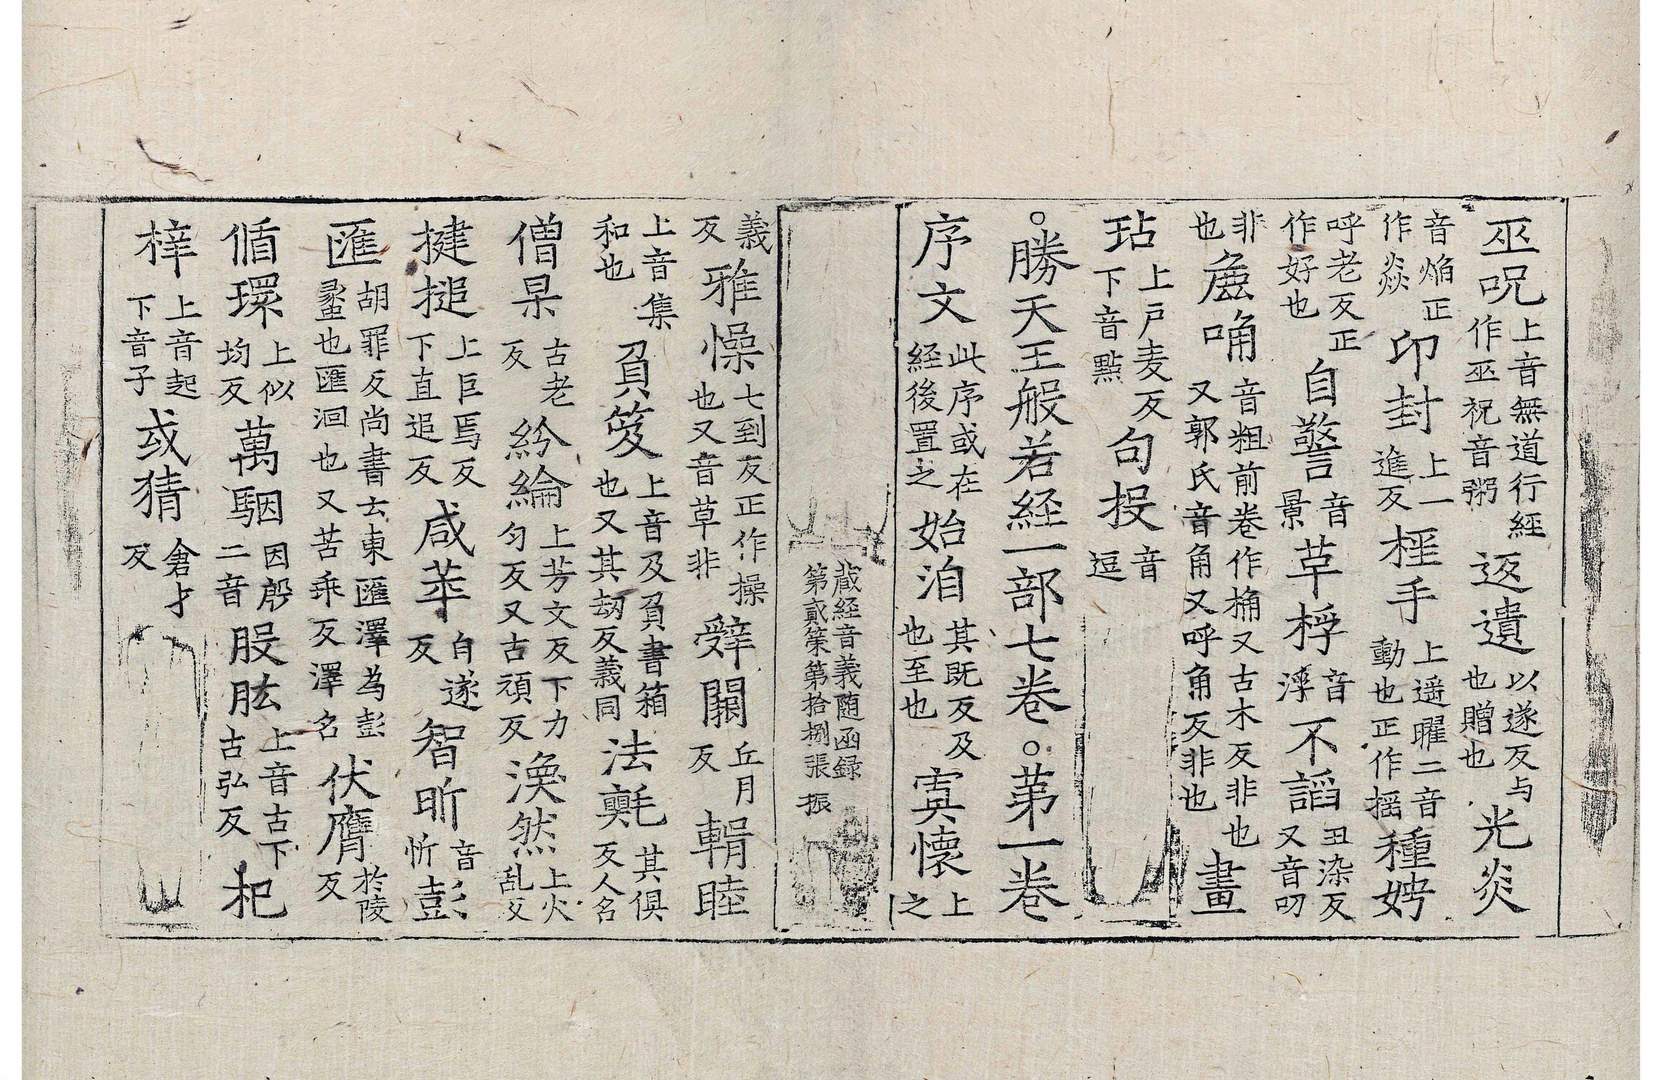 巫呪上音無道行経作巫祝音粥返遺以遂反与也贈也光炎
音焔正作焱印封上一進反桱手上遥曜二音動也正作揺種娉
呼老反正作好也自警音景草桴音浮不謟丑染反又音叨
非也麁啢音粗前卷作桷又古木反非也又郭氏音角又呼角反非也畫
玷上戸麦反下音點句投音逗
○勝天王般若経一部七卷○第一卷
序文此序或在経後置之始洎其既反及也至也寘懐上之
蔵経音義随函録第貳策第拾捌張 振
義反雅懆七到反正作操也又音草非辤闕丘月反輯睦
上音集和也負笈上音及負書箱也又其劫反義同法㲲其俱反人名
僧杲古老反紛綸上芳文反下力匀反又古頑反渙然上火乱反
揵搥上巨焉反下直追反咸萃自遂反智昕音忻彭
匯胡罪反尚書云東匯澤為彭蠡也匯洄也又苦乖反澤名伏膺於陵反
循環上似均反萬駰因殷二音股肱上音古下古弘反杞
梓上音起下音子或猜倉才反